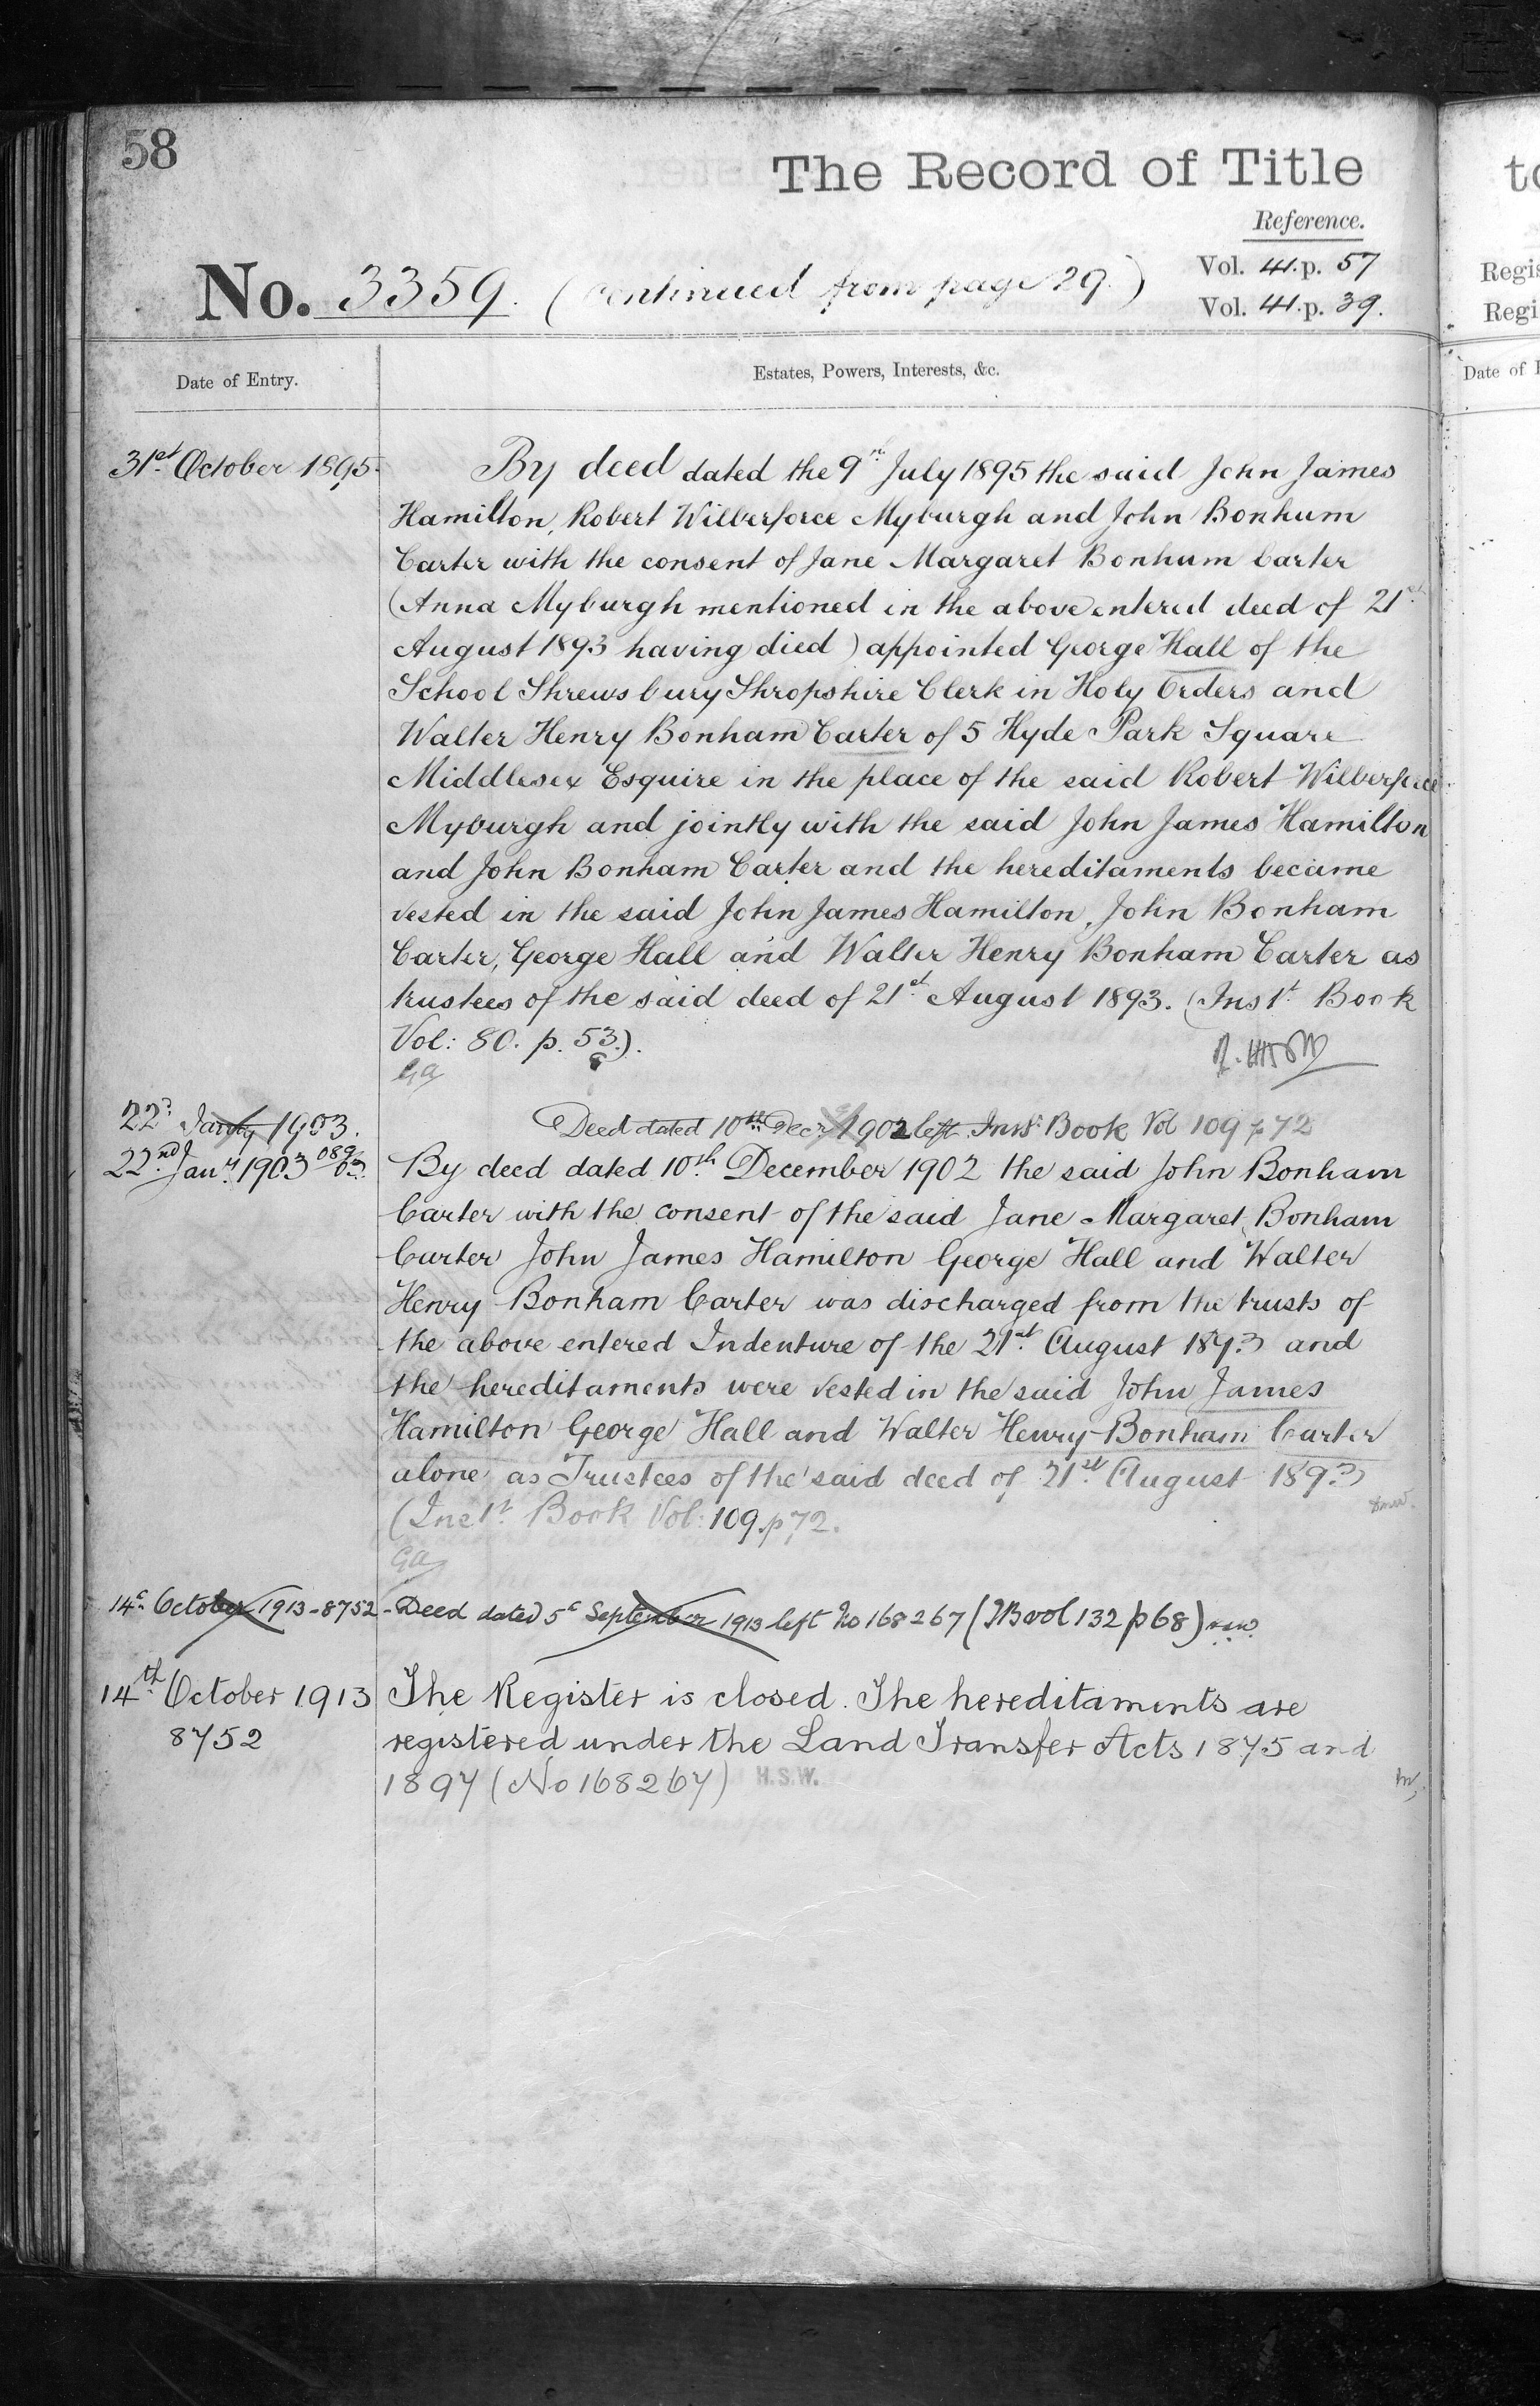 58
The Record of Title
Reference.
No. 3359. (continued from page 29.)
Vol. 41. p. 57
Vol. 41. p. 39.
Date of Entry.
Estates, Powers, Interests, &c.
31st October 1895.
By deed dated the 9th July 1895 the said John James
Hamilton, Robert Wilberforce Myburgh and John Bonhum
Carter with the consent of Jane Margaret Bonhum Carter
(Anna Myburgh mentioned in the above entered deed of 21st
August 1893 having died) appointed George Hall of the
School Shrewsbury Shropshire Clerk in Holy Orders and
Walter Henry Bonham Carter of 5 Hyde Park Square
Middlesex Esquire in the place of the said Robert Wilberforce
Myburgh and jointly with the said John James Hamilton
and John Bonham Carter and the hereditaments became
vested in the said John James Hamilton, John Bonham
Carter, George Hall and Walter Henry Bonham Carter as
trustees of the said deed of 21st August 1893. (Inst. Book
Vol: 80. p. 53.).
GA
22d Janry 1903.
Deed dated 10th Decr 1902 left Inst. Book Vol 109 p 72
22nd Jany 1903 089/03.
By deed dated 10th December 1902 the said John Bonham
Carter with the consent of the said Jane Margaret Bonham
Carter John James Hamilton George Hall and Walter
Henry Bonham Carter was discharged from the trusts of
the above entered Indenture of the 21st August 1893 and
the hereditaments were vested in the said John James
Hamilton George Hall and Walter Henry Bonham Carter
alone as Trustees of the said deed of 21st August 1893
(Inst. Book Vol: 109. p 72.
GA
14th October 1913 - 8752
Deed dated 5th September 1913 left No 168267 (IB vol 132 p 68)
14th October 1913
8752
The Register is closed. The hereditaments are
registered under the Land Transfer Acts 1875 and
1897 (No 168267) H.S.W.
to
Regis
Regi
Date of E